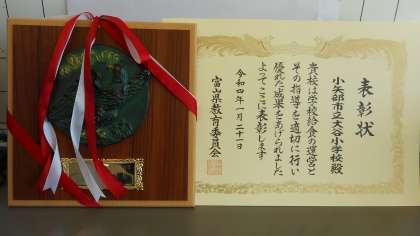 表彰状
小矢部市立大谷小学校殿
貴校は学校給食の運営と
その指導を適切に行い
優れた成果をあげられました
よってここに表彰します
令和四年一月二十一日
富山県教育委員会